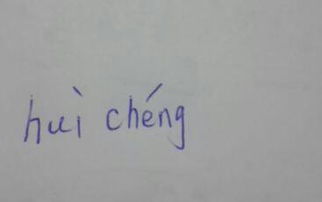 huì chéng